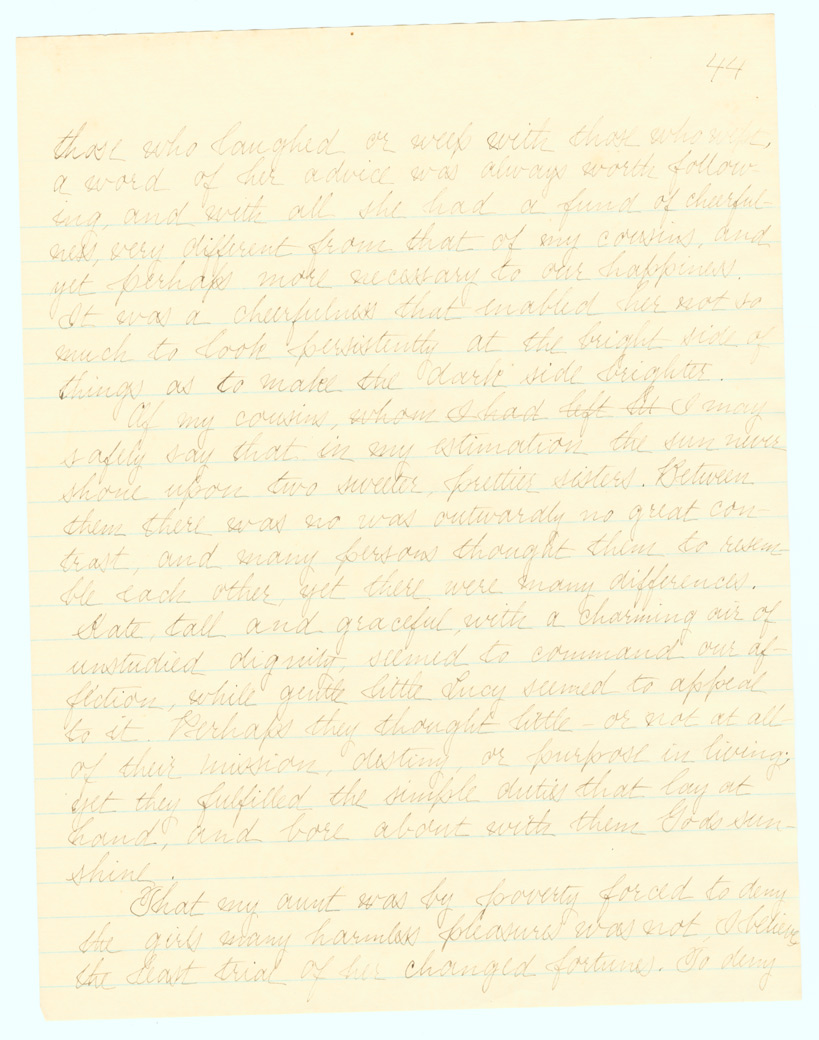 44
those who laughed or weep with those who wept,
a word of her advice was always worth follow-
ing, and with all she had a fund of cheerful-
ness, very different from that of my cousins, and
yet perhaps more necessary to our happiness.
It was a cheerfulness that enabled her not so
much to look persistently at the bright side of
things as to make the dark side brighter.
Of my cousins, whom I had left it I may
safely say that in my estimation the sun never
shone upon two sweeter, prettier sisters. Between
them there was no was outwardly no great con-
trast, and many persons thought them to resem-
ble each other, yet there were many differences.
Kate, tall and graceful, with a charming air of
unstudied dignity, seemed to command our af-
fection, while gentle little Lucy seemed to appeal
to it. Perhaps they thought little - or not at all
of their mission, destiny, or purpose in living;
yet they fulfilled the simple duties that lay at
hand, and bore about with them Gods sun-
shine.
That my aunt was by poverty forced to deny
the girls many harmless pleasures was not, I believe
the least trial of her changed fortunes. To deny